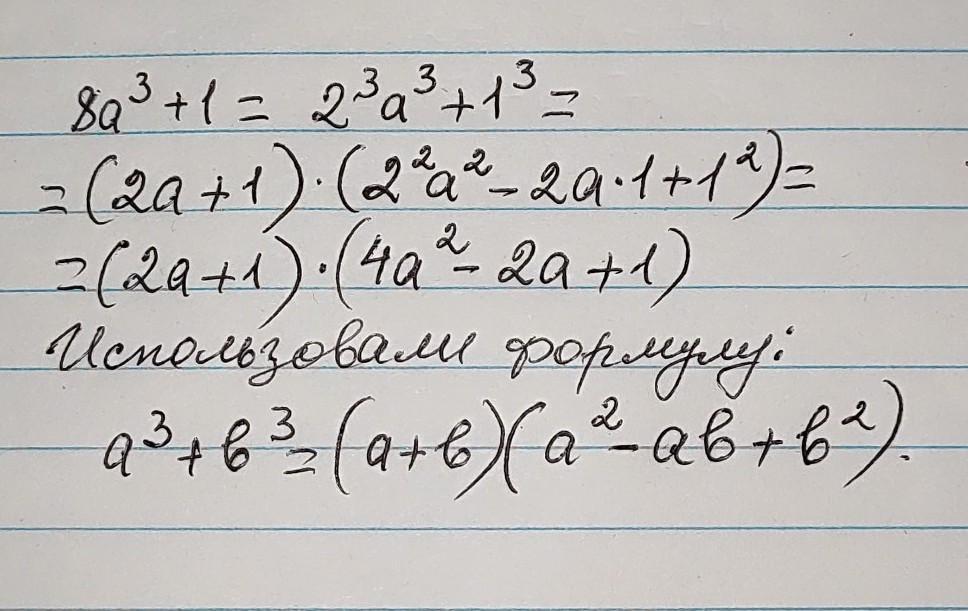 8a³+1 = 2³a³+1³=
=(2a+1)·(2²a²-2a·1+1²)=
=(2a+1)·(4a²-2a+1)
Использовали формулу:
a³+b³=(a+b)(a²-ab+b²).